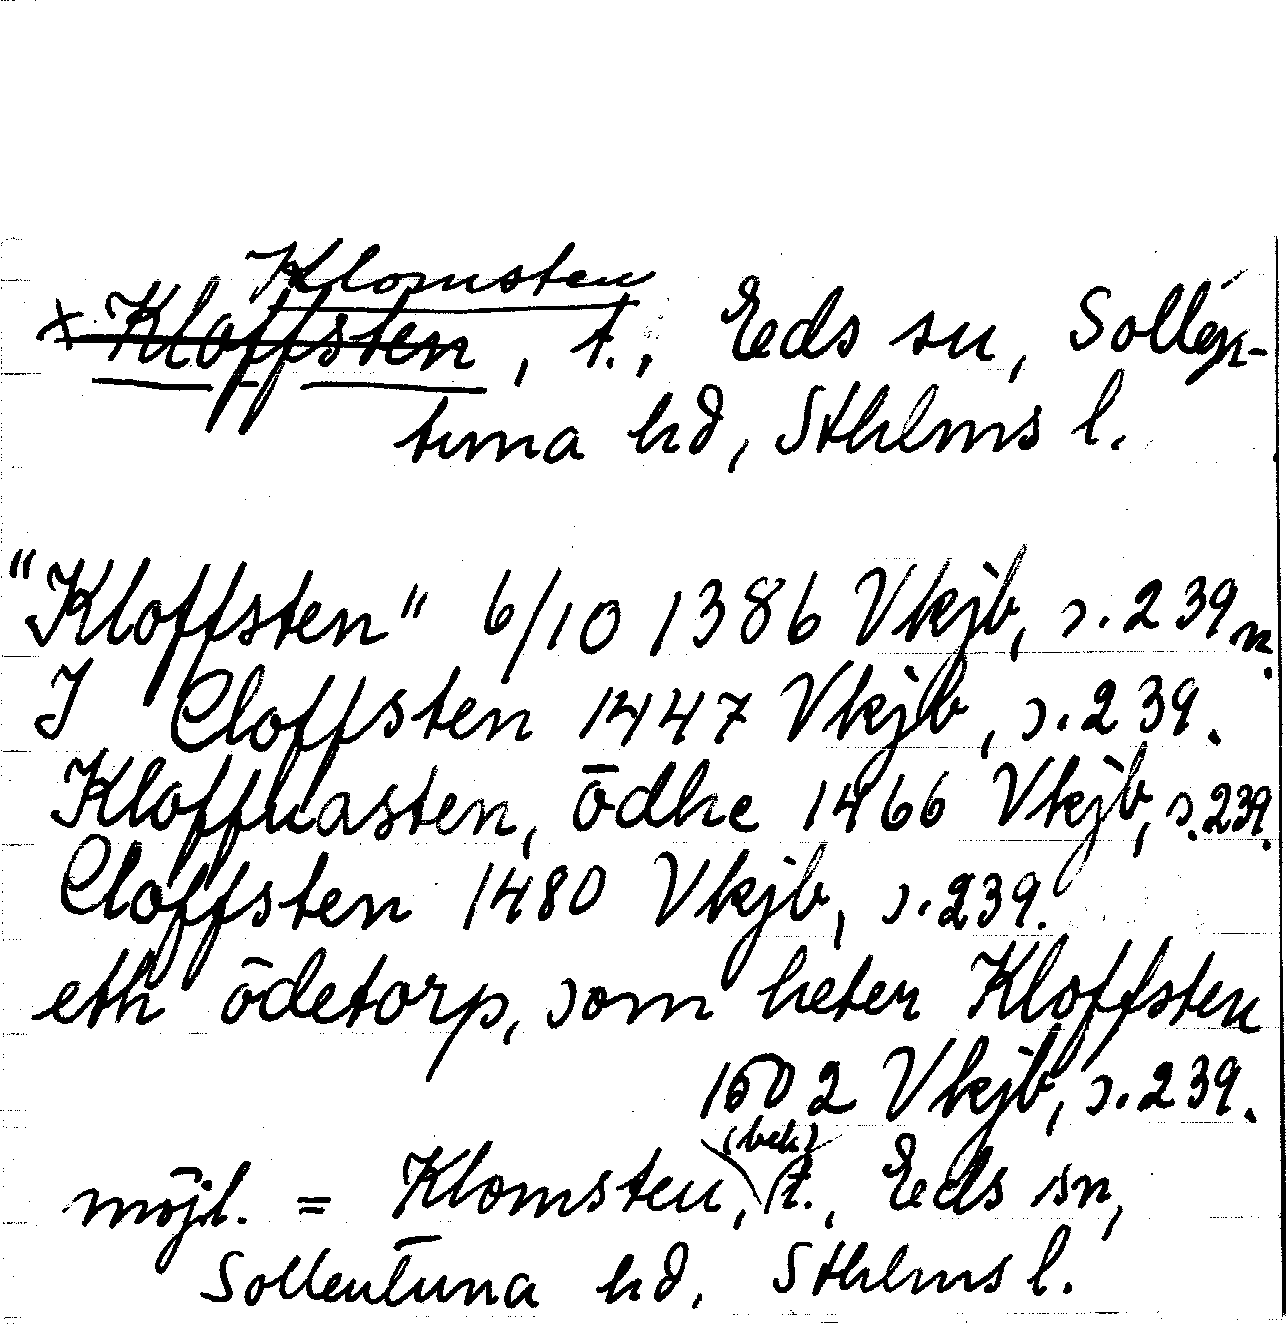 Klomsten
x Kloffsten, t., Eds sn, Sollen-
tuna hd, Sthlms l.
"Kloffsten" 6/10 1386 Vkjb, s. 239 n.
I Cloffsten 1447 Vkjb, s. 239.
Kloffuasten, ödhe 1466 Vkjb, s. 239.
Cloffsten 1480 Vkjb, s. 239.
eth ödetorp, som heter Kloffsten
1502 Vkjb, s. 239.
möjl. = Klomsten, (beb) t., Eds sn,
Sollentuna hd, Sthlms l.